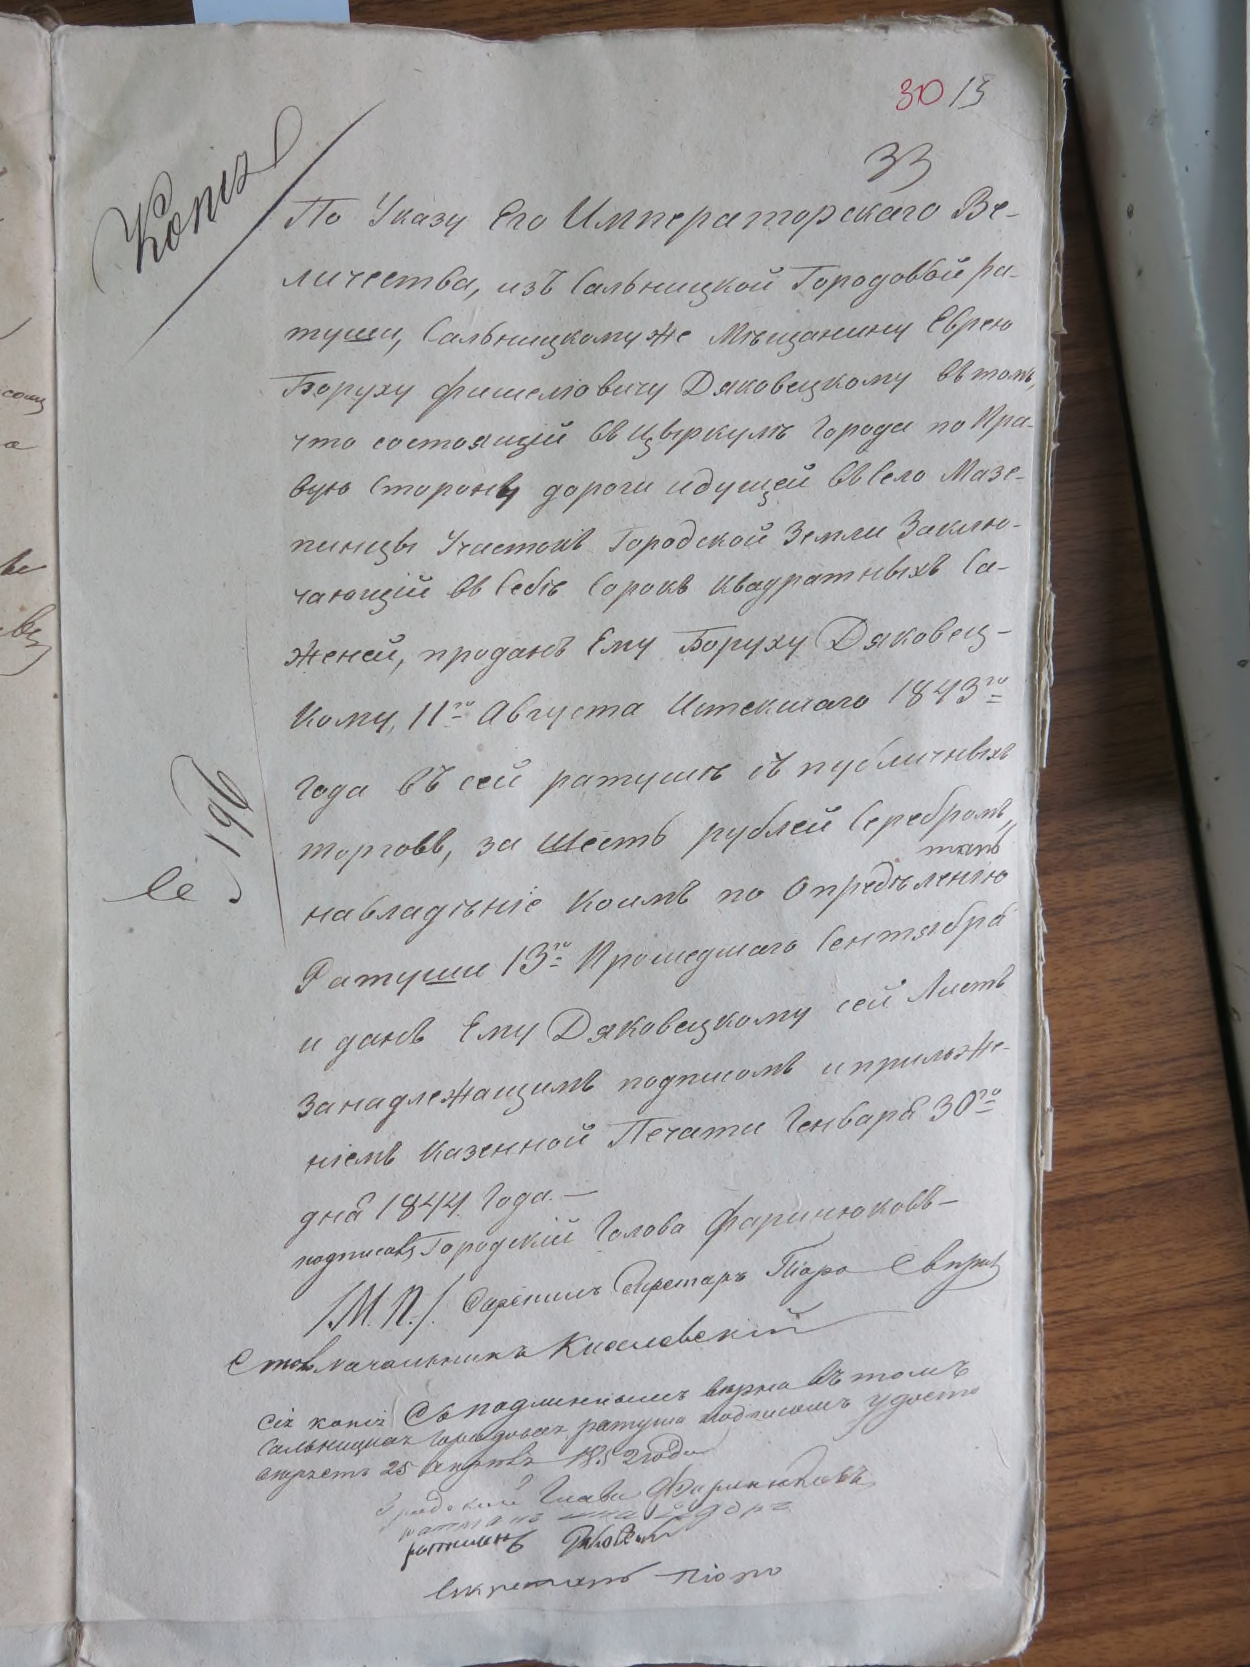 30 13
33
Копія
По Указу Его Императорскаго Ве-
личества, изъ Сальницкой Городовой ра-
туши, Сальницкому же Мѣщанину Еврею
Боруху Фишелiовичу Дяковецкому въ томъ,
что состоящій въ Цыркулѣ Города по Пра-
вую Сторону дороги идущей въ Село Мазе-
пинцы Участокъ Городской Земли Заклю-
чающій въ Себѣ Сорокъ Квадратныхъ Са-
женей, проданъ Ему Боруху Дяковец-
кому, 11го Августа Истекшаго 1843го
года въ сей ратушѣ съ публичныхъ
торговъ, за Шесть рублей Серебромъ,
такъ
на владѣніе Коимъ по Опредѣленію
Ратуши 13го Прошедшаго Сентября
и данъ Ему Дяковецкому сей Листъ
За надлежащимъ подписомъ и приложе-
ніемъ Казенной Печати Генваря 30го
дня 1844 Года. —
№ 196
подписалъ Городскій Голова Фаринюковъ —
/М. П./. Скрепилъ Секретарь Піоро Свѣрилъ
Столоначальникъ Киселевскій
Сія копія Съ подлиннымъ вѣрна въ томъ
Сальницкая Городовая ратуша подписомъ удосто
вѣряетъ 25 Апреля 1852 года
Градской Глава Фаринюковъ
ратманъ
ратманъ
Секретарь Піоро